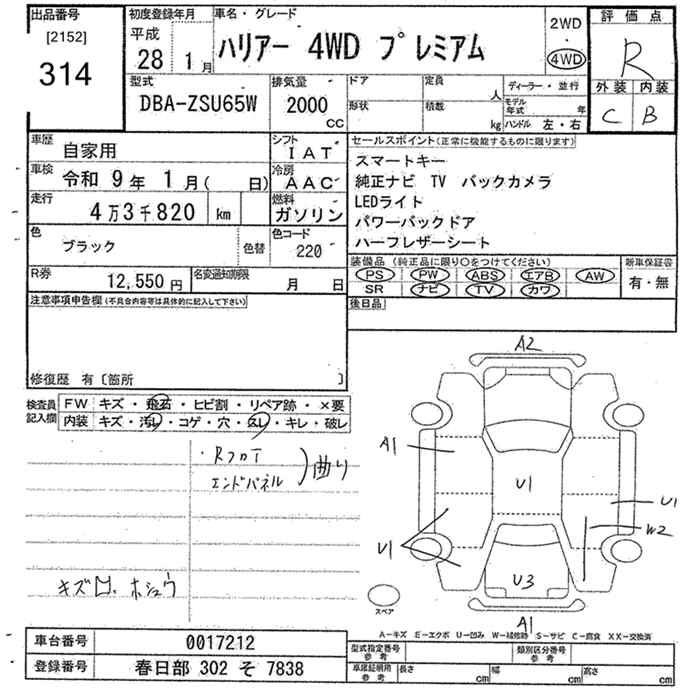 出品番号
[2152]
314
初度登録年月
平成
28 1月
車名・グレード
ハリアー 4WD プレミアム
2WD
4WD
評価点
R
外装 内装
C B
型式
DBA-ZSU65W
排気量
2000
CC
ドア
定員
人
形状
積載
kg
ディーラー・並行
モデル年式 年
ハンドル 左・右
車歴
自家用
シフト
IAT
車検
令和 9年 1月( 日)
冷房
AAC
走行
4万3千820 km
燃料
ガソリン
色
ブラック
色替
色コード
220
R券
12,550円
名変通知期限
月 日
セールスポイント(正常に機能するものに限ります)
スマートキー
純正ナビ TV バックカメラ
LEDライト
パワーバックドア
ハーフレザーシート
装備品(純正品に限り○をつけてください)
PS PW ABS エアB AW
SR ナビ TV カワ
新車保証書
有・無
後日品
注意事項申告欄(不具合内容等は具体的に記入して下さい)
修復歴 有〔箇所 〕
検査員
記入欄
FW キズ・飛石・ヒビ割・リペア跡・×要
内装 キズ・汚レ・コゲ・穴・スレ・キレ・破レ
・Rフロア
エンドパネル
)曲り
キズ凹、ホシュウ
A2
A1
U1
U1
W2
U1
U3
A1
スペア
A-キズ E-エクボ U-凹み W-補修跡 S-サビ C-腐食 XX-交換済
車台番号
0017212
登録番号
春日部 302 そ 7838
型式指定番号
参考
類別区分番号
参考
車庫証明用
参考
長さ cm
幅 cm
高さ cm